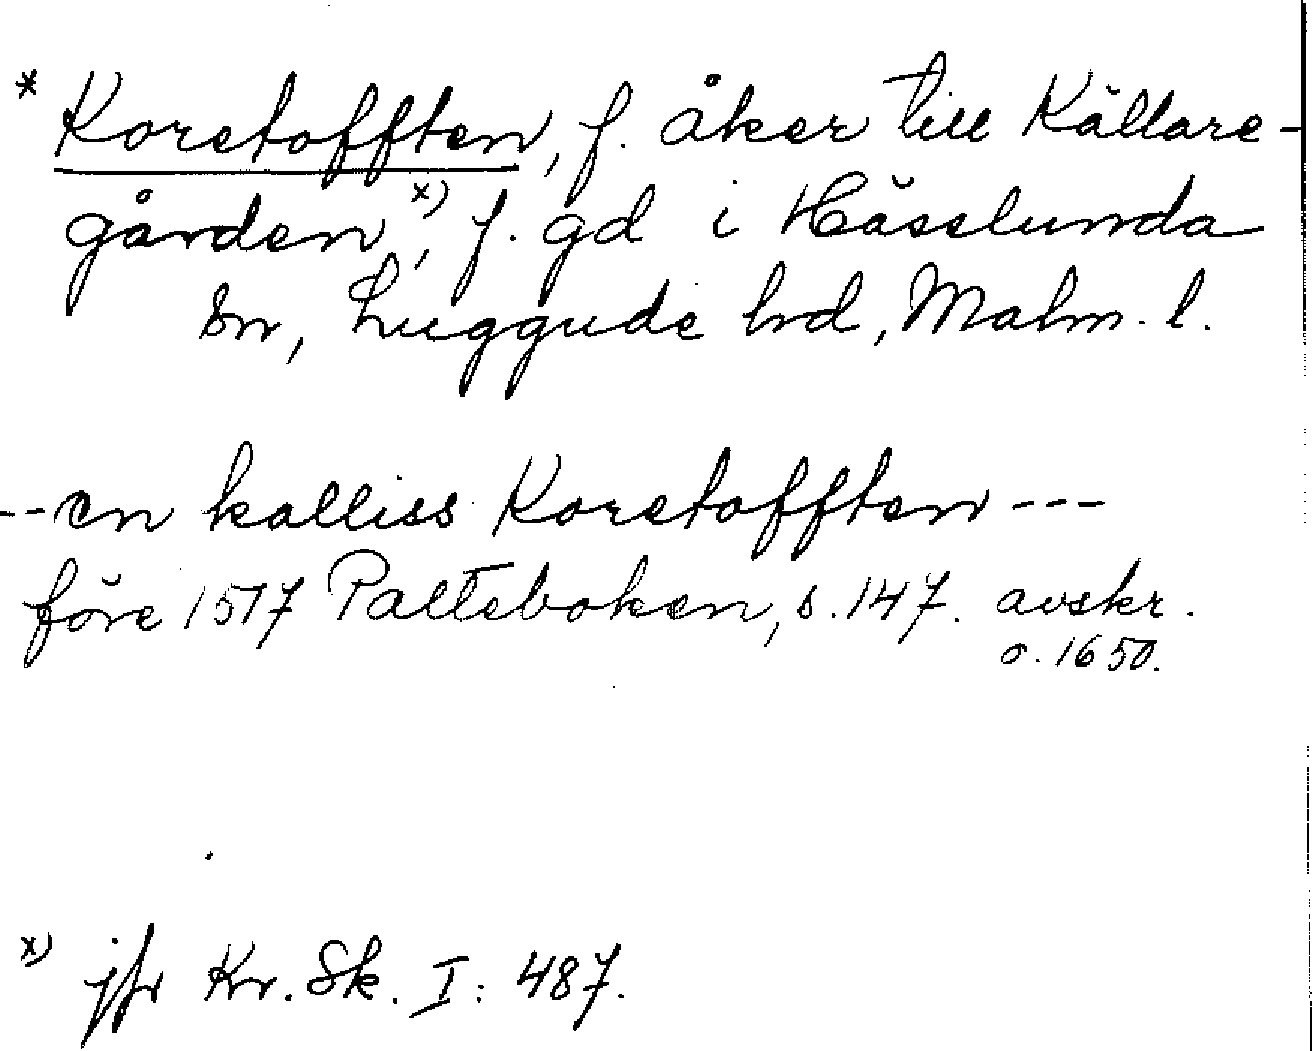 * Koretofften, f. åker till Källare-
gården x), f. gd i Hässlunda
sn, Luggude hd, Malm. l.
--en kalliss Koretofften---
före 1517 Palteboken, s. 147. avskr.
o. 1650.
x) jfr Kr. Sk. I: 487.